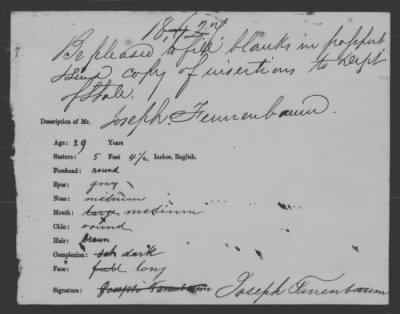 Be pleased to fill blanks in passport
& send copy of insertions to Dept
of State.
Joseph
Description of Mr.
Age: 29 Years
Stature: 5 Feet 4½ Inches, English.
Forehead: round
Eyes: grey
Nose: medium
Mouth: large medium
Chin: round
Hair: brown
Complexion: dark
Face: full long
Signature: Joseph Tanenbaum Joseph Tanenbaum